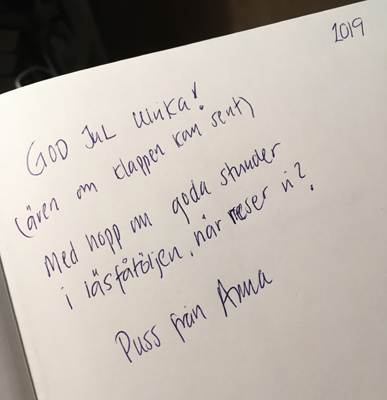 2019
GOD JUL Ulrika!
(även om klappen kom sent)
Med hopp om goda stunder
i läsfåtöljen, när reser vi?
Puss från Anna